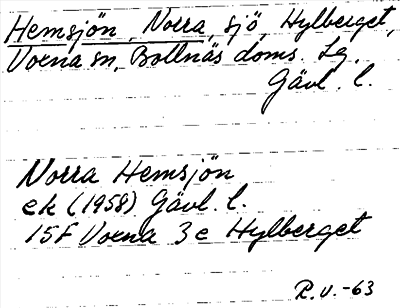 Hemsjön, Norra, sjö, Hylberget,
Voxna sn, Bollnäs doms. Lg,
Gävl. l.
Norra Hemsjön
ek (1958) Gävl. l.
15F Voxna 3e Hylberget
R.V. -63